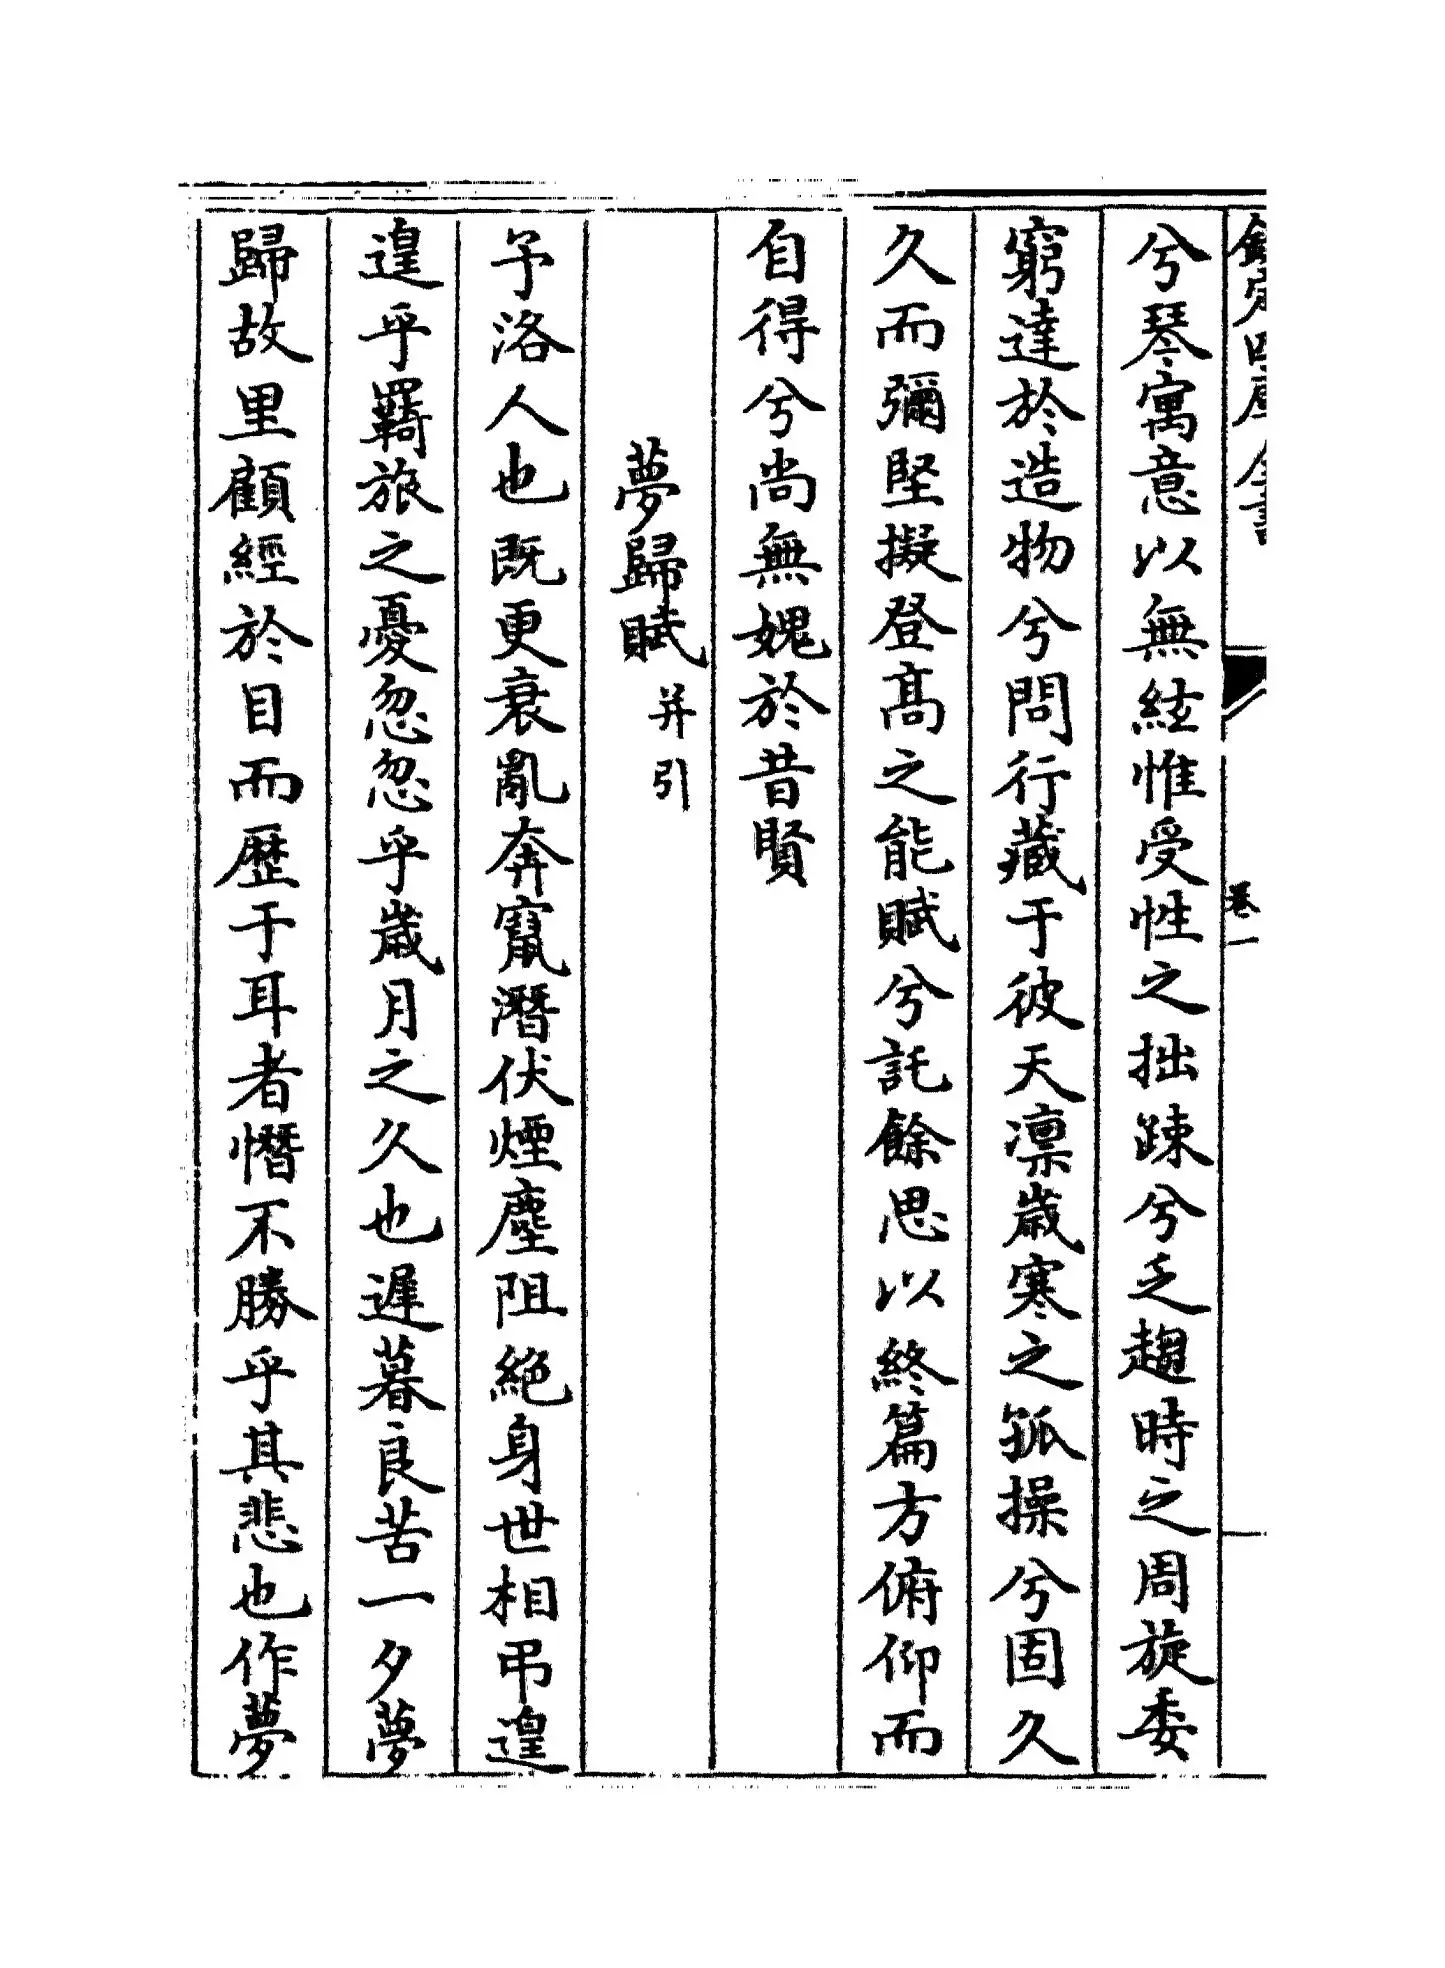 欽定四庫全書
卷一
兮琴寓意以無絃惟受性之拙踈兮乏趨時之周旋委
窮達於造物兮問行藏于彼天凛歲寒之孤操兮固久
久而彌堅擬登髙之能賦兮託餘思以終篇方俯仰而
自得兮尚無媿於昔賢
夢歸賦并引
予洛人也既更衰亂奔竄潛伏煙塵阻絶身世相弔遑
遑乎羇旅之憂忽忽乎歲月之久也遲暮良苦一夕夢
歸故里顧經於目而歴于耳者憯不勝乎其悲也作夢